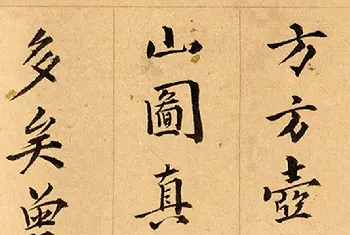 方方壺
山圖真
多矣曾